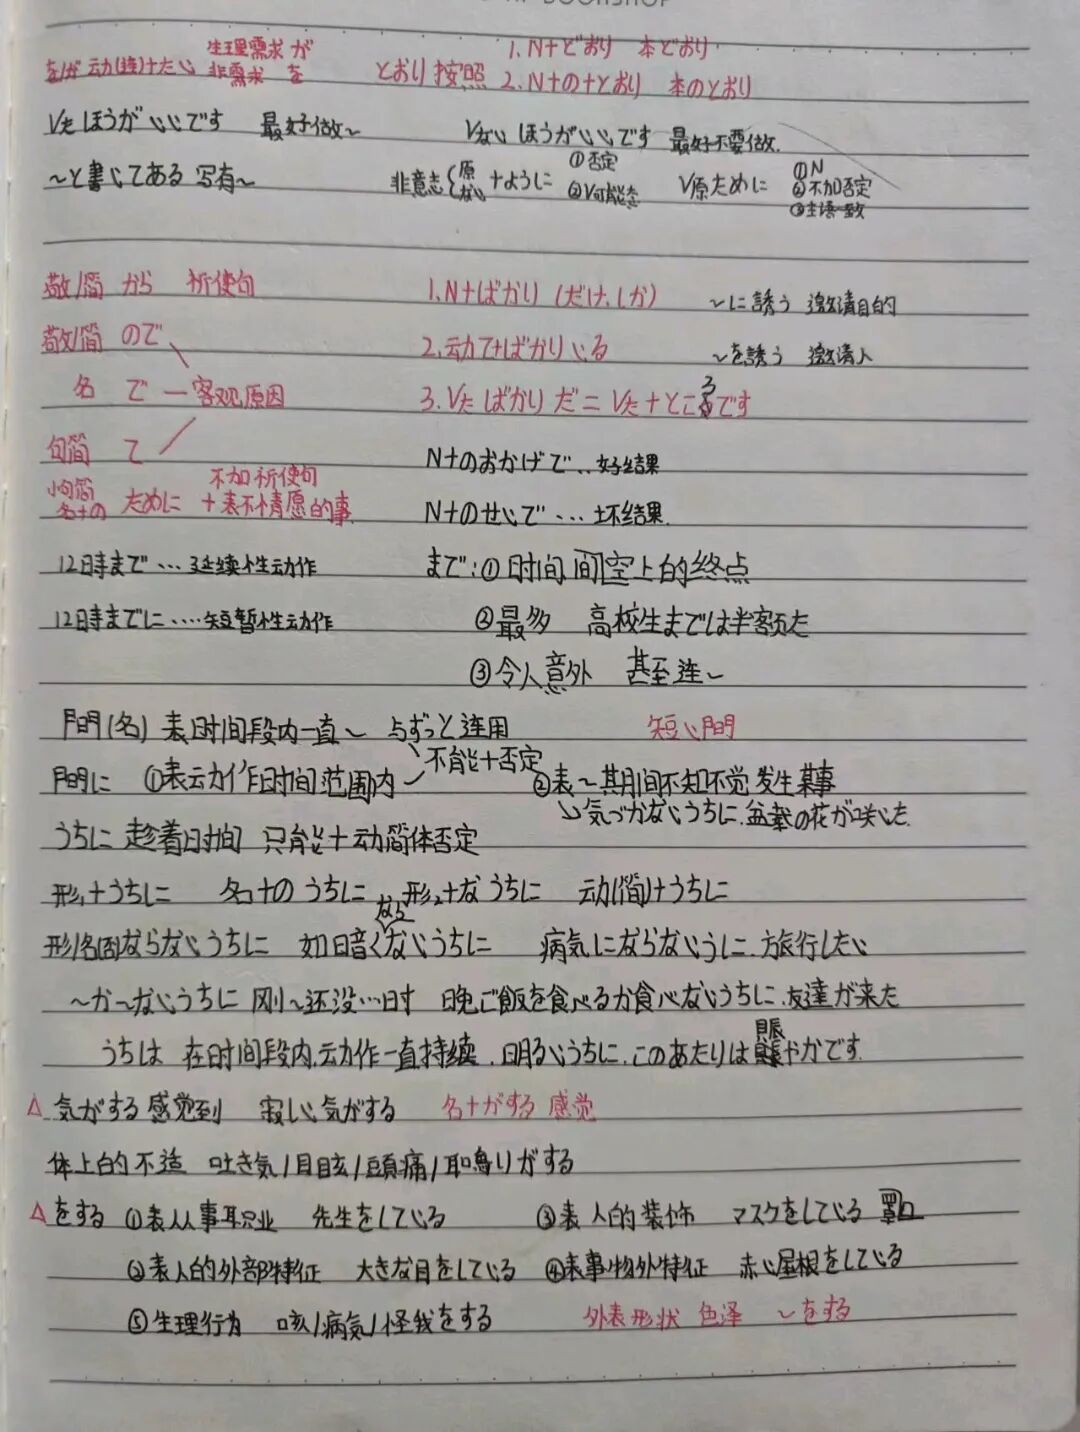 を/が 动(连)+たい 生理需求 が 非需求 を とおり 按照 1. N+どおり 本どおり 2. N+の+とおり 本のとおり
Vた ほうがいいです 最好做~ Vない ほうがいいです 最好不要做.
~と書いてある 写有~ 非意志{原 ない +ように ①否定 ②V可能态 V原ために ①N ②不加否定 ③主语一致
敬/简 から 祈使句 1. N+ばかり (だけ.しか) ~に誘う 邀请目的
敬/简 ので 2. 动て+ばかりいる ~を誘う 邀请人
名 で — 客观原因 3. Vた ばかり だ = Vた+ところです
句简 て N+のおかげで... 好结果
小句简 名+の ために 不加祈使句 +表不情愿的事 N+のせいで... 坏结果.
12時まで... 延续性动作 まで:①时间.间空上的终点
12時までに.... 短暂性动作 ②最多 高校生までは半額だ
③令人意外 甚至连~
間(名) 表时间段内一直~ 与ずっと连用 短い間
間に ①表动作时间范围内 不能+否定 ②表~其期间不知不觉发生某事
气づかないうちに.盆栽の花が咲いた
うちに 趁着时间 只能+动简体否定
形₁+うちに 名+の うちに 形₂+な うちに 动(简)+うちに
形/名(固)ならないうちに 如 暗くならないうちに 病気にならないうに.旅行したい
~か~ないうちに 刚~还没...时 晚ご飯を食べるか食べないうちに.友達が来た
うちは 在时间段内.动作一直持续. 明るいうちに.このあたりは賑やかです.
△ 気がする 感觉到 寂しい気がする 名+がする 感觉
体上的不适 吐き気/目眩/頭痛/耳鳴りがする
△ をする ①表从事职业 先生をしている ③表人的装饰 マスクをしている
②表人的外部特征 大きな目をしている ④表事物外特征 赤い屋根をしている
⑤生理行为 咳/病気/怪我をする 外表形状 色泽 ~をする